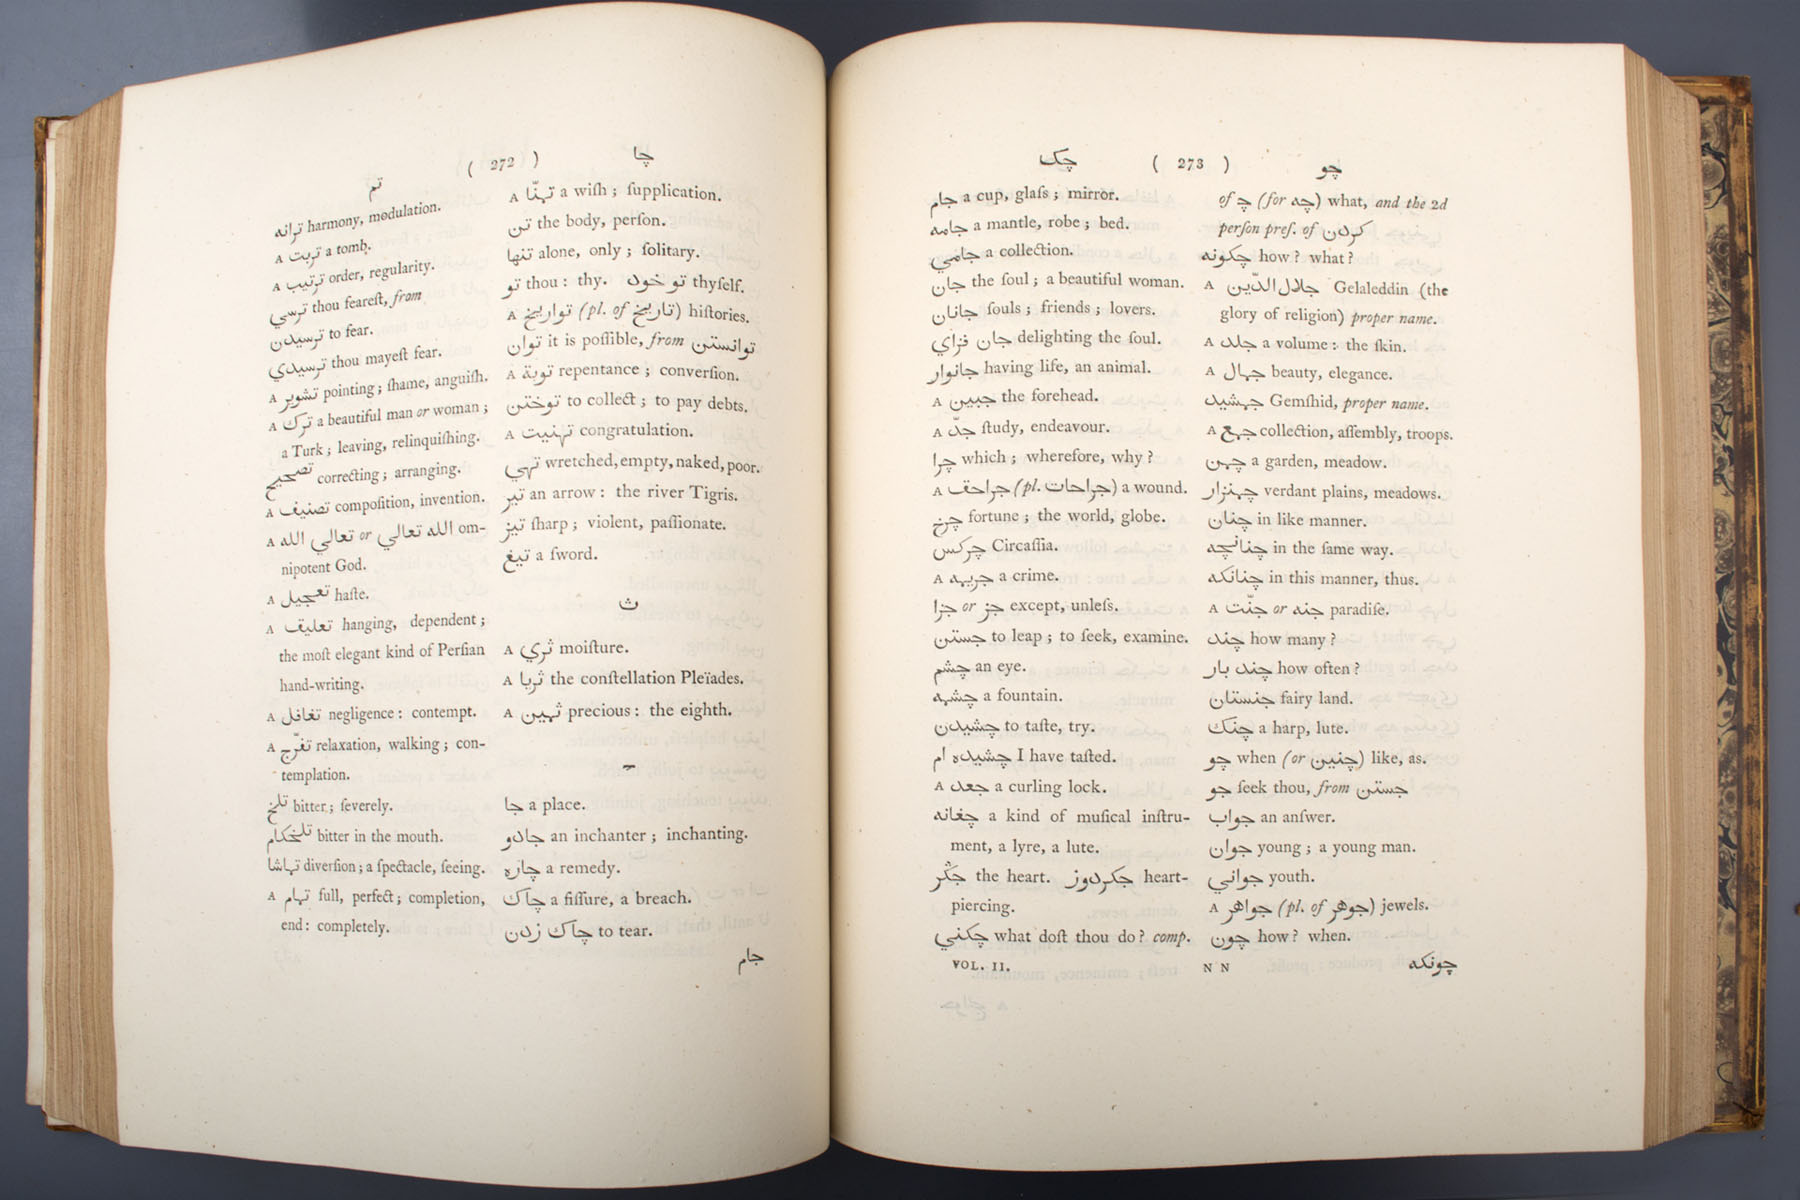 ( 272 )
تم
چا
ترانه harmony, modulation.
A تربت a tomb.
A ترتيب order, regularity.
ترسي thou feareſt, from
ترسيدن to fear.
ترسيدي thou mayeſt fear.
A تشوير pointing; ſhame, anguiſh.
A ترك a beautiful man or woman;
a Turk; leaving, relinquiſhing.
تصحيح correcting; arranging.
A تصنيف compoſition, invention.
A تعالي الله or الله تعالي om-
nipotent God.
A تعجيل haſte.
A تعليق hanging, dependent;
the moſt elegant kind of Perſian
hand-writing.
A تغافل negligence: contempt.
A تفرّج relaxation, walking; con-
templation.
تلخ bitter; ſeverely.
تلخكام bitter in the mouth.
تماشا diverſion; a ſpectacle, ſeeing.
A تمام full, perfect; completion,
end: completely.
A تمنّا a wiſh; ſupplication.
تن the body, perſon.
تنها alone, only; ſolitary.
تو thou: thy. تو خود thyſelf.
A تواريخ (pl. of تاريخ) hiſtories.
توان it is poſſible, from توانستن
A توبة repentance; converſion.
توختن to collect; to pay debts.
A تهنيت congratulation.
تهي wretched, empty, naked, poor.
تير an arrow: the river Tigris.
تيز ſharp; violent, paſſionate.
تيغ a ſword.
ث
A ثري moiſture.
A ثريا the conſtellation Pleïades.
A ثمين precious: the eighth.
جا a place.
جادو an inchanter; inchanting.
چاره a remedy.
چاك a fiſſure, a breach.
چاك زدن to tear.
جام
چك
( 273 )
چو
جام a cup, glaſs; mirror.
جامه a mantle, robe; bed.
جامي a collection.
جان the ſoul; a beautiful woman.
جانان ſouls; friends; lovers.
جان فزاي delighting the ſoul.
جانوار having life, an animal.
A جبين the forehead.
A جدّ ſtudy, endeavour.
چرا which; wherefore, why?
A جراحة (pl. جراحات) a wound.
چرخ fortune; the world, globe.
چركس Circaſſia.
A جريمه a crime.
جزا or جز except, unleſs.
جستن to leap; to ſeek, examine.
چشم an eye.
چشمه a fountain.
چشيدن to taſte, try.
چشيده ام I have taſted.
A جعد a curling lock.
چغانه a kind of muſical inſtru-
ment, a lyre, a lute.
جگر the heart. جكردوز heart-
piercing.
چكني what doſt thou do? comp.
VOL. II.
of چ (for چه) what, and the 2d
perſon preſ. of كردن
چكونه how? what?
A جلال الدّين Gelaleddin (the
glory of religion) proper name.
A جلد a volume: the ſkin.
A جمال beauty, elegance.
جمشيد Gemſhid, proper name.
A جمع collection, aſſembly, troops.
چمن a garden, meadow.
چمنزار verdant plains, meadows.
چنان in like manner.
چنانچه in the ſame way.
چنانكه in this manner, thus.
A جنّت or جنه paradiſe.
چند how many?
چند بار how often?
جنستان fairy land.
چنك a harp, lute.
چو when (or چنين) like, as.
جو ſeek thou, from جستن
جواب an anſwer.
جوان young; a young man.
جواني youth.
A جواهر (pl. of جوهر) jewels.
چون how? when.
N N
چونكه